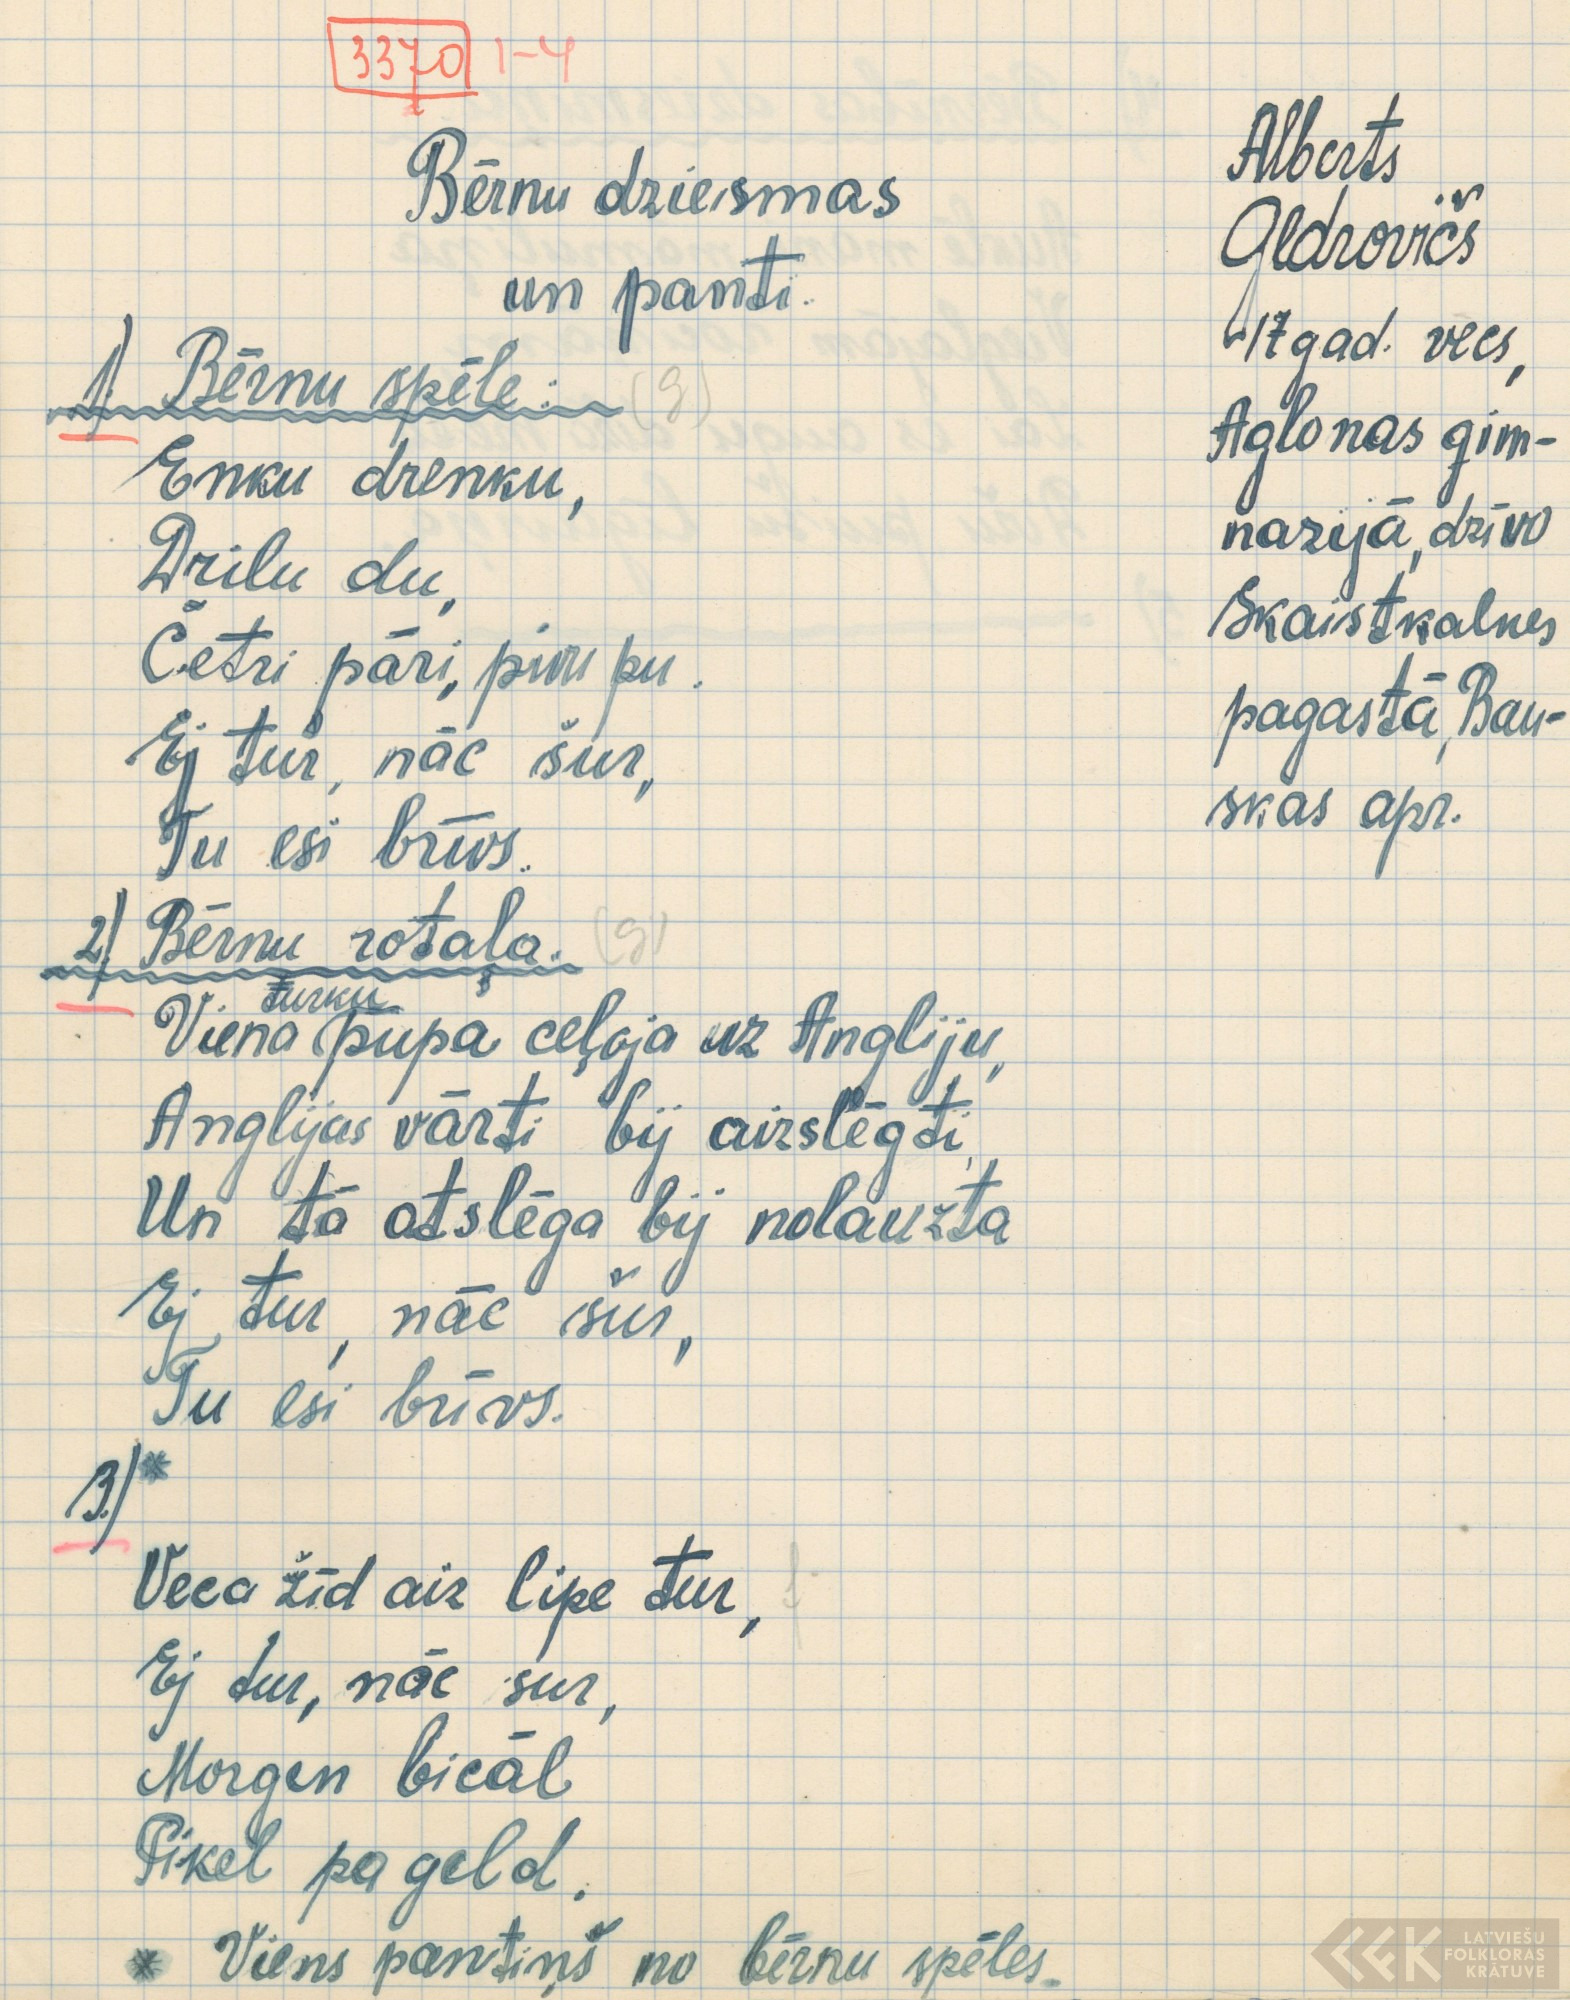 3370 1-4
Bērnu dziesmas
un panti.
1) Bērnu spēle: (g)
Enku drenku,
Drilu du,
Četri pāri, pivu pu.
Ej tur, nāc šur,
Tu esi brīvs.
2) Bērnu rotaļa. (g)
turku
Viena pupa ceļoja uz Angliju,
Anglijas vārti bij aizslēgti,
Un tā atslēga bij nolauzta
Ej tur, nāc šur,
Tu esi brīvs.
3.) *
Veca žīd aiz lipe tur,
Ej tur, nāc sur,
Morgen bicāl
Pikel pa geld.
* Viens pantiņš no bērnu spēles.
Alberts
Geldrovičs
17 gad. vecs,
Aglonas gim-
nazijā, dzīvo
Skaistkalnes
pagastā, Bau-
skas apr.
LATVIEŠU
FOLKLORAS
KRĀTUVE